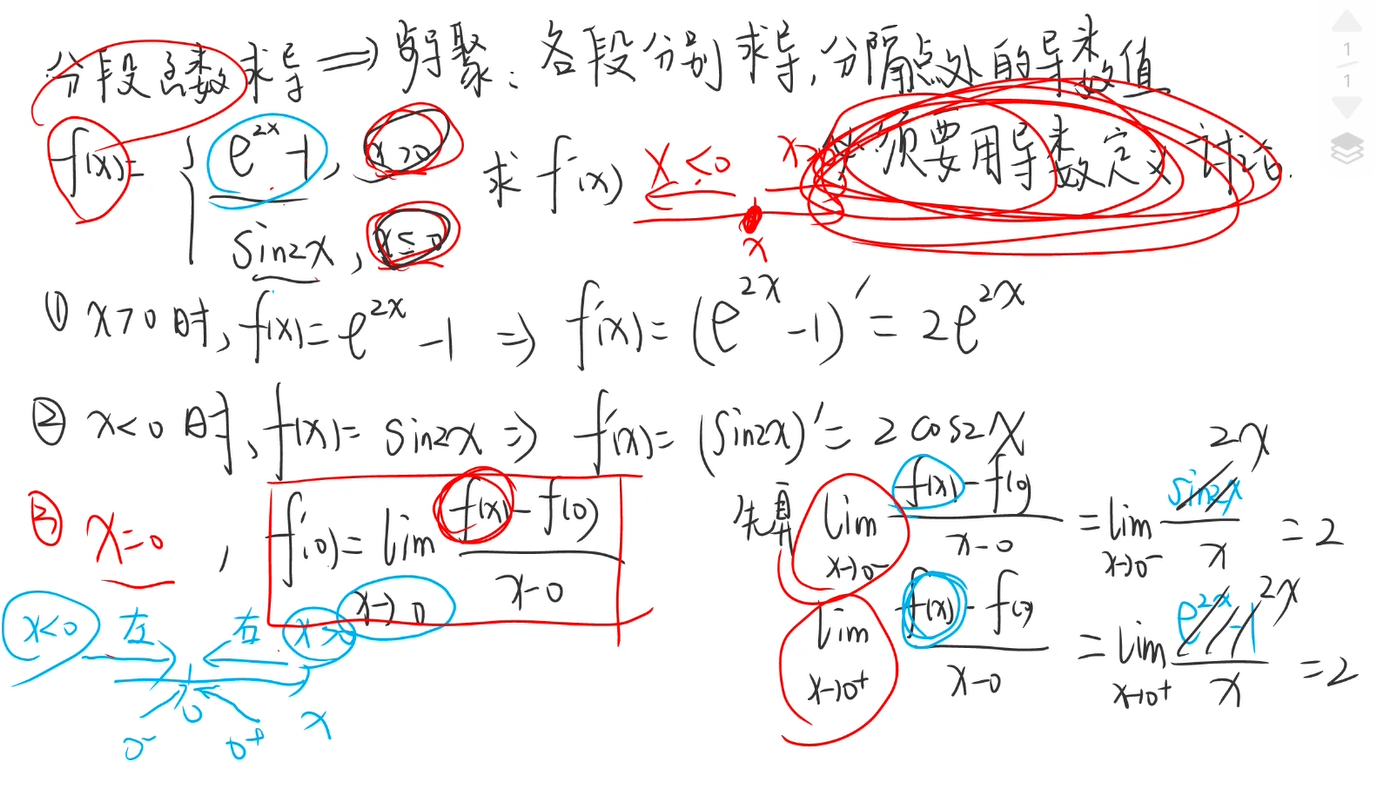 分段函数求导 ⟹ 步骤：各段分别求导，分隔点处的导数值
必须要用导数定义讨论.
f(x)= { e^{2x}-1, x>0
sin2x, x≤0
求 f'(x)
x<0
x>
x
① x>0 时, f(x)= e^{2x} -1 ⇒ f'(x)= (e^{2x} -1)' = 2e^{2x}
② x<0 时, f(x)= sin2x ⇒ f'(x)= (sin2x)' = 2cos2x
③ x=0 , f'(0)= lim_{x→0} \frac{f(x)-f(0)}{x-0}
先算 lim_{x→0^-} \frac{f(x)-f(0)}{x-0} = lim_{x→0^-} \frac{sin2x}{x} = 2
2x
lim_{x→0^+} \frac{f(x)-f(0)}{x-0} = lim_{x→0^+} \frac{e^{2x}-1}{x} = 2
2x
x<0 左 右 x>0
0
0^- 0^+ x
1
1